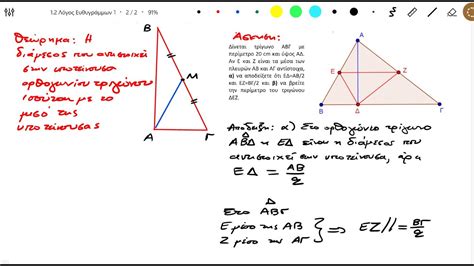 1.2 Λόγος Ευθυγράμμων 1 • 2 / 2 • 91%
Θεώρημα: Η
διάμεσος που αντιστοιχεί
στην υποτείνουσα
ορθογωνίου τριγώνου
ισούται με το
μισό της
υποτείνουσας
Β
Μ
Α
Γ
Άσκηση:
Δίνεται τρίγωνο ΑΒΓ με
περίμετρο 20 cm και ύψος ΑΔ.
Αν Ε και Ζ είναι τα μέσα των
πλευρών ΑΒ και ΑΓ αντίστοιχα,
α) να αποδείξετε ότι ΕΔ=ΑΒ/2
και ΕΖ=ΒΓ/2 και β) να βρείτε
την περίμετρο του τριγώνου
ΔΕΖ.
Α
Ε
Ζ
Β
Δ
Γ
Απόδειξη: α) Στο ορθογώνιο τρίγωνο
ΑΒΔ η ΕΔ είναι η διάμεσος που
αντιστοιχεί στην υποτείνουσα, άρα
ΕΔ = ΑΒ/2
Στο ΑΒΓ
Ε μέσο της ΑΒ
Ζ μέσο της ΑΓ } ⇒ ΕΖ//= ΒΓ/2